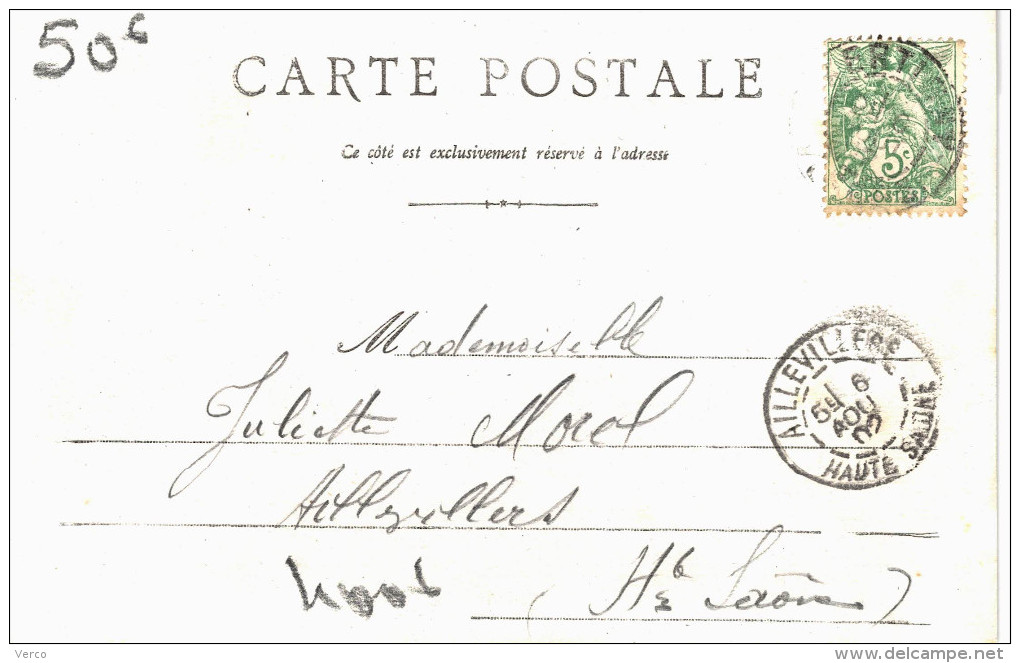 50c
CARTE POSTALE
Ce côté est exclusivement réservé à l'adresse
5c
POSTES
Mademoiselle
Juliette Morel
Aillevillers
(Hte Saône)
AILLEVILLERS
6
AOU
HAUTE SAONE
Verco
delcampe.net